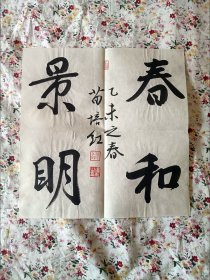 春和
景明
乙未之春
苗培红